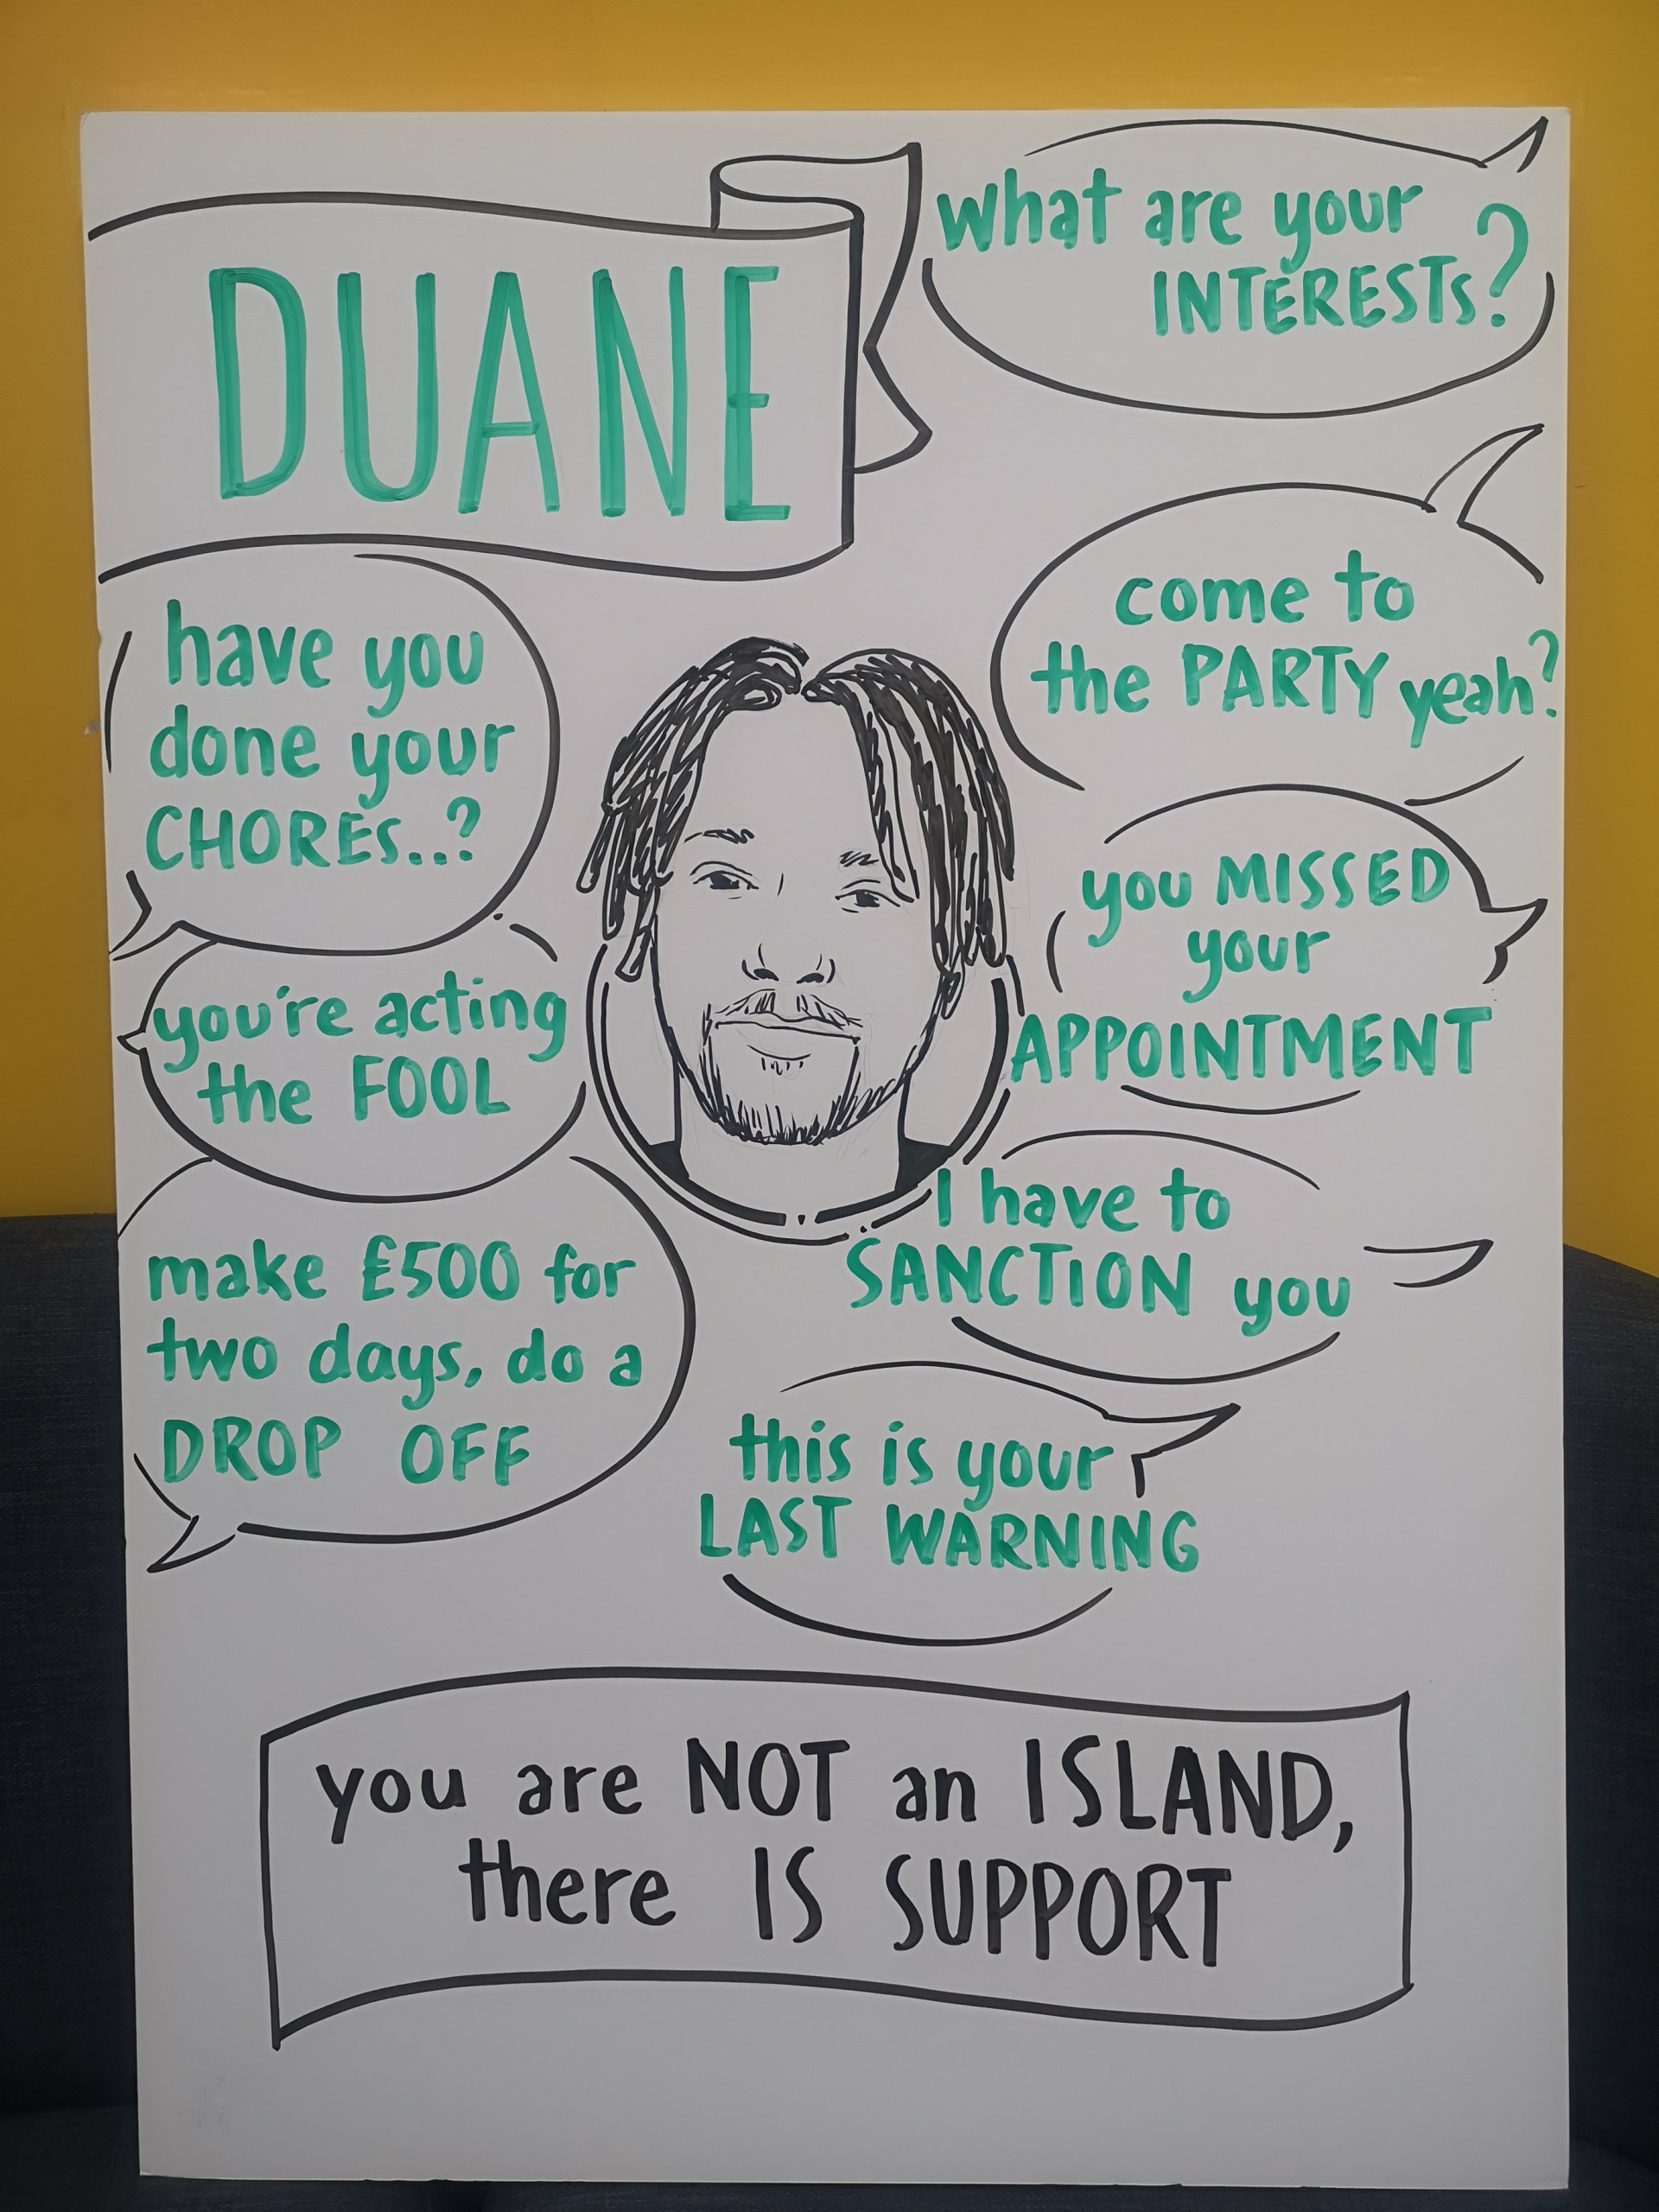 DUANE
what are your
INTERESTS?
come to
the PARTY yeah?
have you
done your
CHORES..?
you MISSED
your
APPOINTMENT
you're acting
the FOOL
I have to
SANCTION you
make £500 for
two days, do a
DROP OFF
this is your
LAST WARNING
you are NOT an ISLAND,
there IS SUPPORT